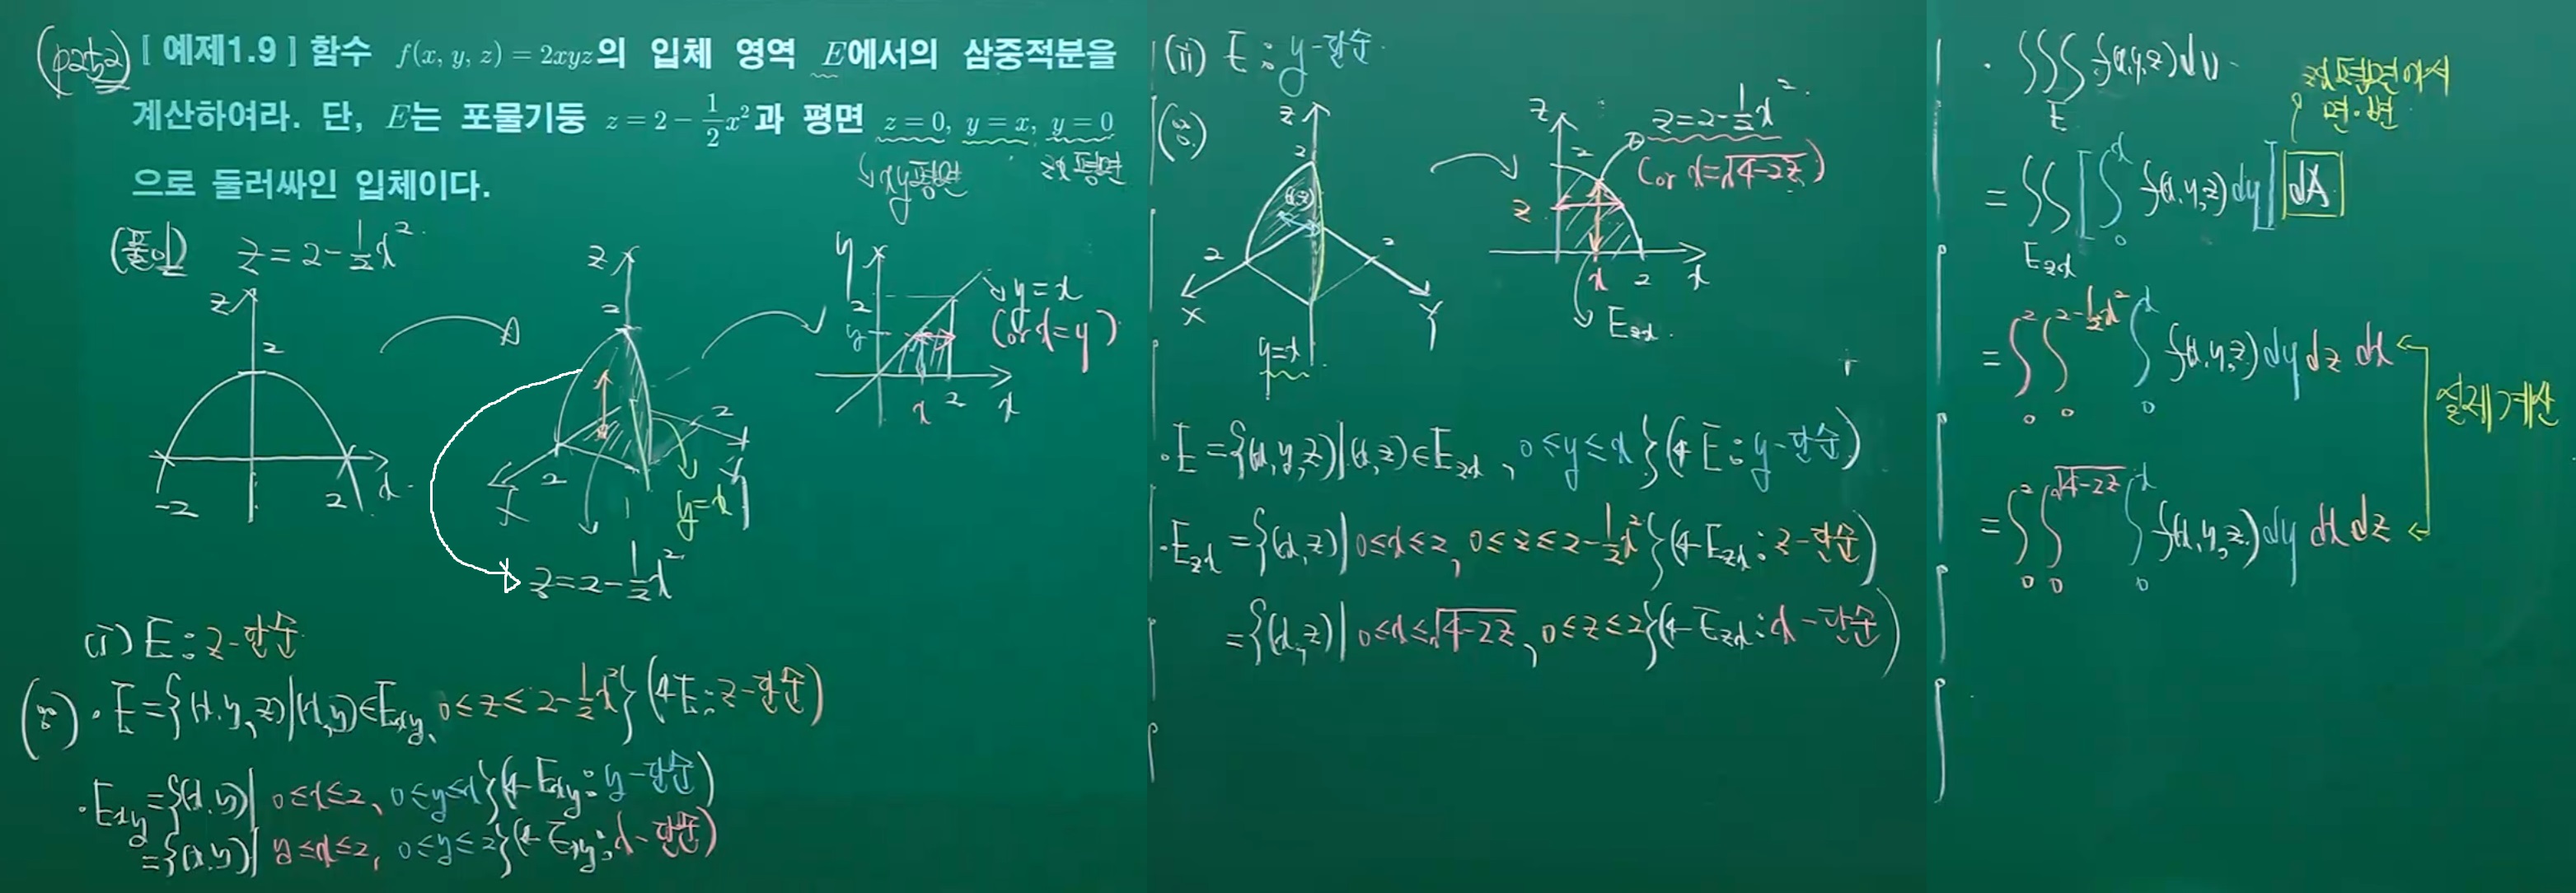 (part2) [ 예제1.9 ] 함수 f(x, y, z) = 2xyz의 입체 영역 E에서의 삼중적분을
계산하여라. 단, E는 포물기둥 z = 2 - 1/2 x²과 평면 z = 0, y = x, y = 0
↓xy평면 zx평면
으로 둘러싸인 입체이다.
(풀이) z = 2 - 1/2 x²
z 2 -2 2 x
z 2 2 X 2 Y y=x
z = 2 - 1/2 x²
y 2 y x 2 x
y=x
(or x=y)
(i) E : z-단순
(∵) · E = {(x,y,z) | (x,y)∈Exy, 0≤z≤2-1/2 x²} (← E : z-단순)
· Exy = {(x,y) | 0≤x≤2, 0≤y≤x} (← Exy : y-단순)
= {(x,y) | y≤x≤2, 0≤y≤2} (← Exy : x-단순)
(ii) E : y-단순
(∵) z 2 (x,z) 2 X 2 Y
y=x
z 2 z x 2 x
z = 2 - 1/2 x²
(or x = √(4-2z))
Ezx
· E = {(x,y,z) | (x,z)∈Ezx, 0≤y≤x} (← E : y-단순)
· Ezx = {(x,z) | 0≤x≤2, 0≤z≤2-1/2 x²} (← Ezx : z-단순)
= {(x,z) | 0≤x≤√(4-2z), 0≤z≤2} (← Ezx : x-단순)
· ∫∫∫_E f(x,y,z) dv
zx평면에서
면·변
= ∫∫_Ezx [∫_0^x f(x,y,z) dy] dA
= ∫_0^2 ∫_0^(2-1/2 x²) ∫_0^x f(x,y,z) dy dz dx
실제계산
= ∫_0^2 ∫_0^√(4-2z) ∫_0^x f(x,y,z) dy dx dz